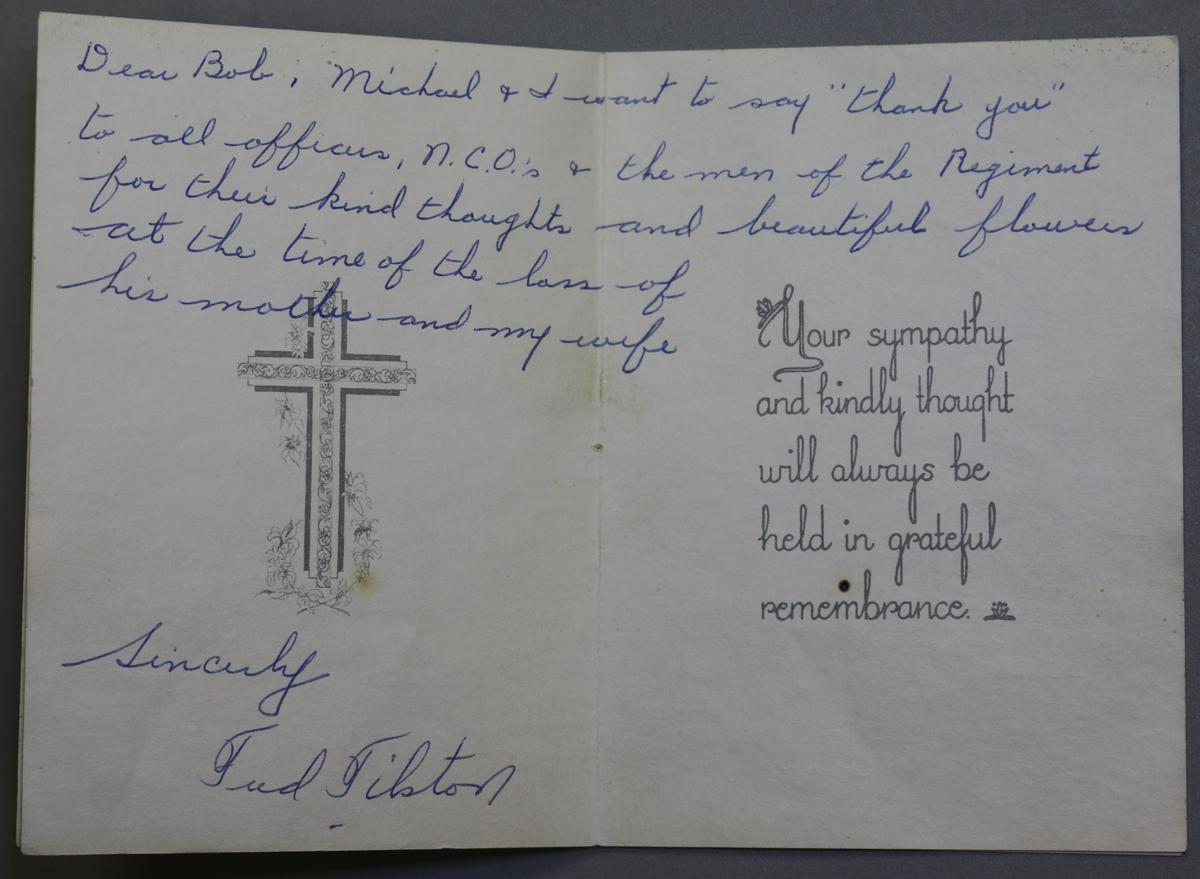 Dear Bob, Michael & I want to say "thank you"
to all officers, N.C.O.'s & the men of the Regiment
for their kind thoughts and beautiful flowers
at the time of the loss of
his mother and my wife
Your sympathy
and kindly thought
will always be
held in grateful
remembrance.
Sincerly
Fred Tilston